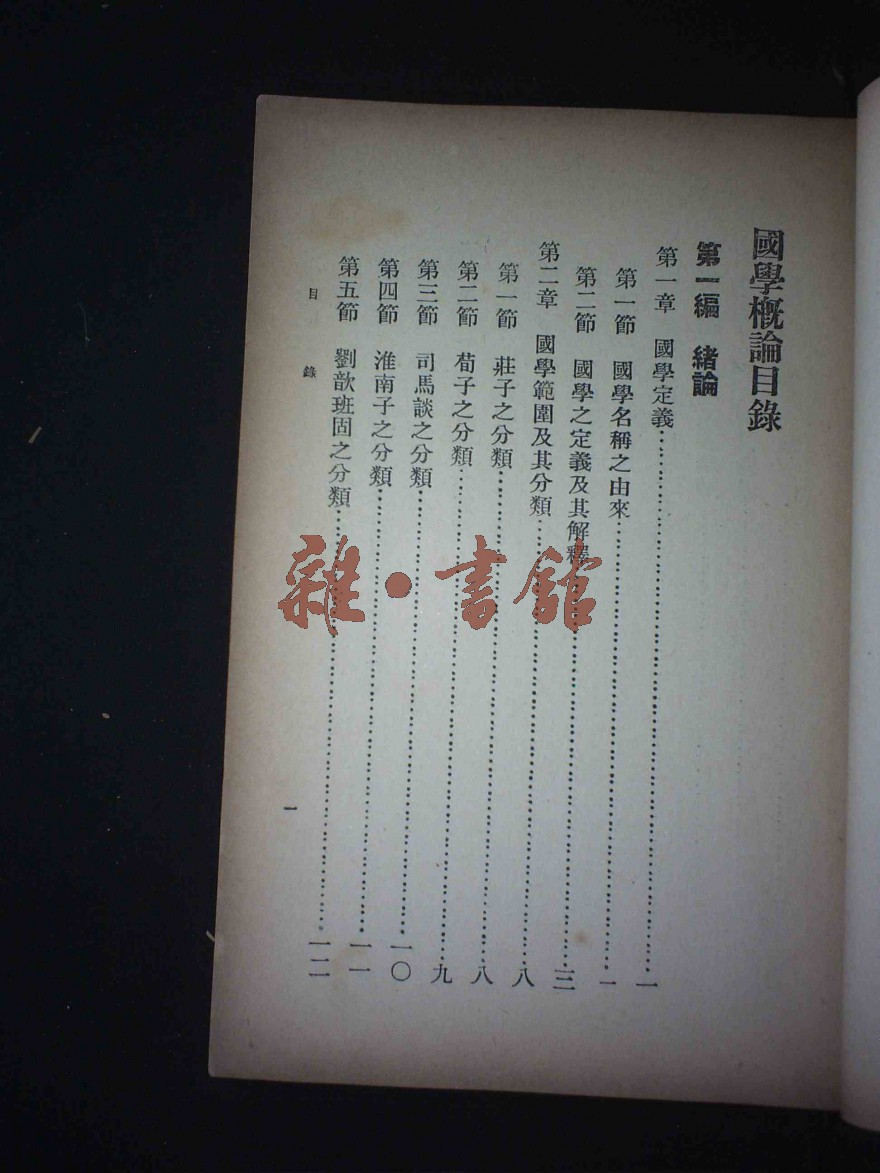 國學概論目錄
第一編 緒論
第一章 國學定義……一
第一節 國學名稱之由來……一
第二節 國學之定義及其解釋……三
第二章 國學範圍及其分類……八
第一節 莊子之分類……八
第二節 荀子之分類……九
第三節 司馬談之分類……一〇
第四節 淮南子之分類……一一
第五節 劉歆班固之分類……一二
目錄
一
雜·書館